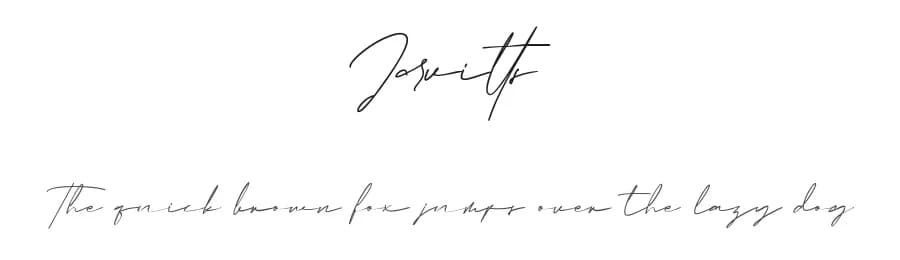 Jarvitts
The quick brown fox jumps over the lazy dog